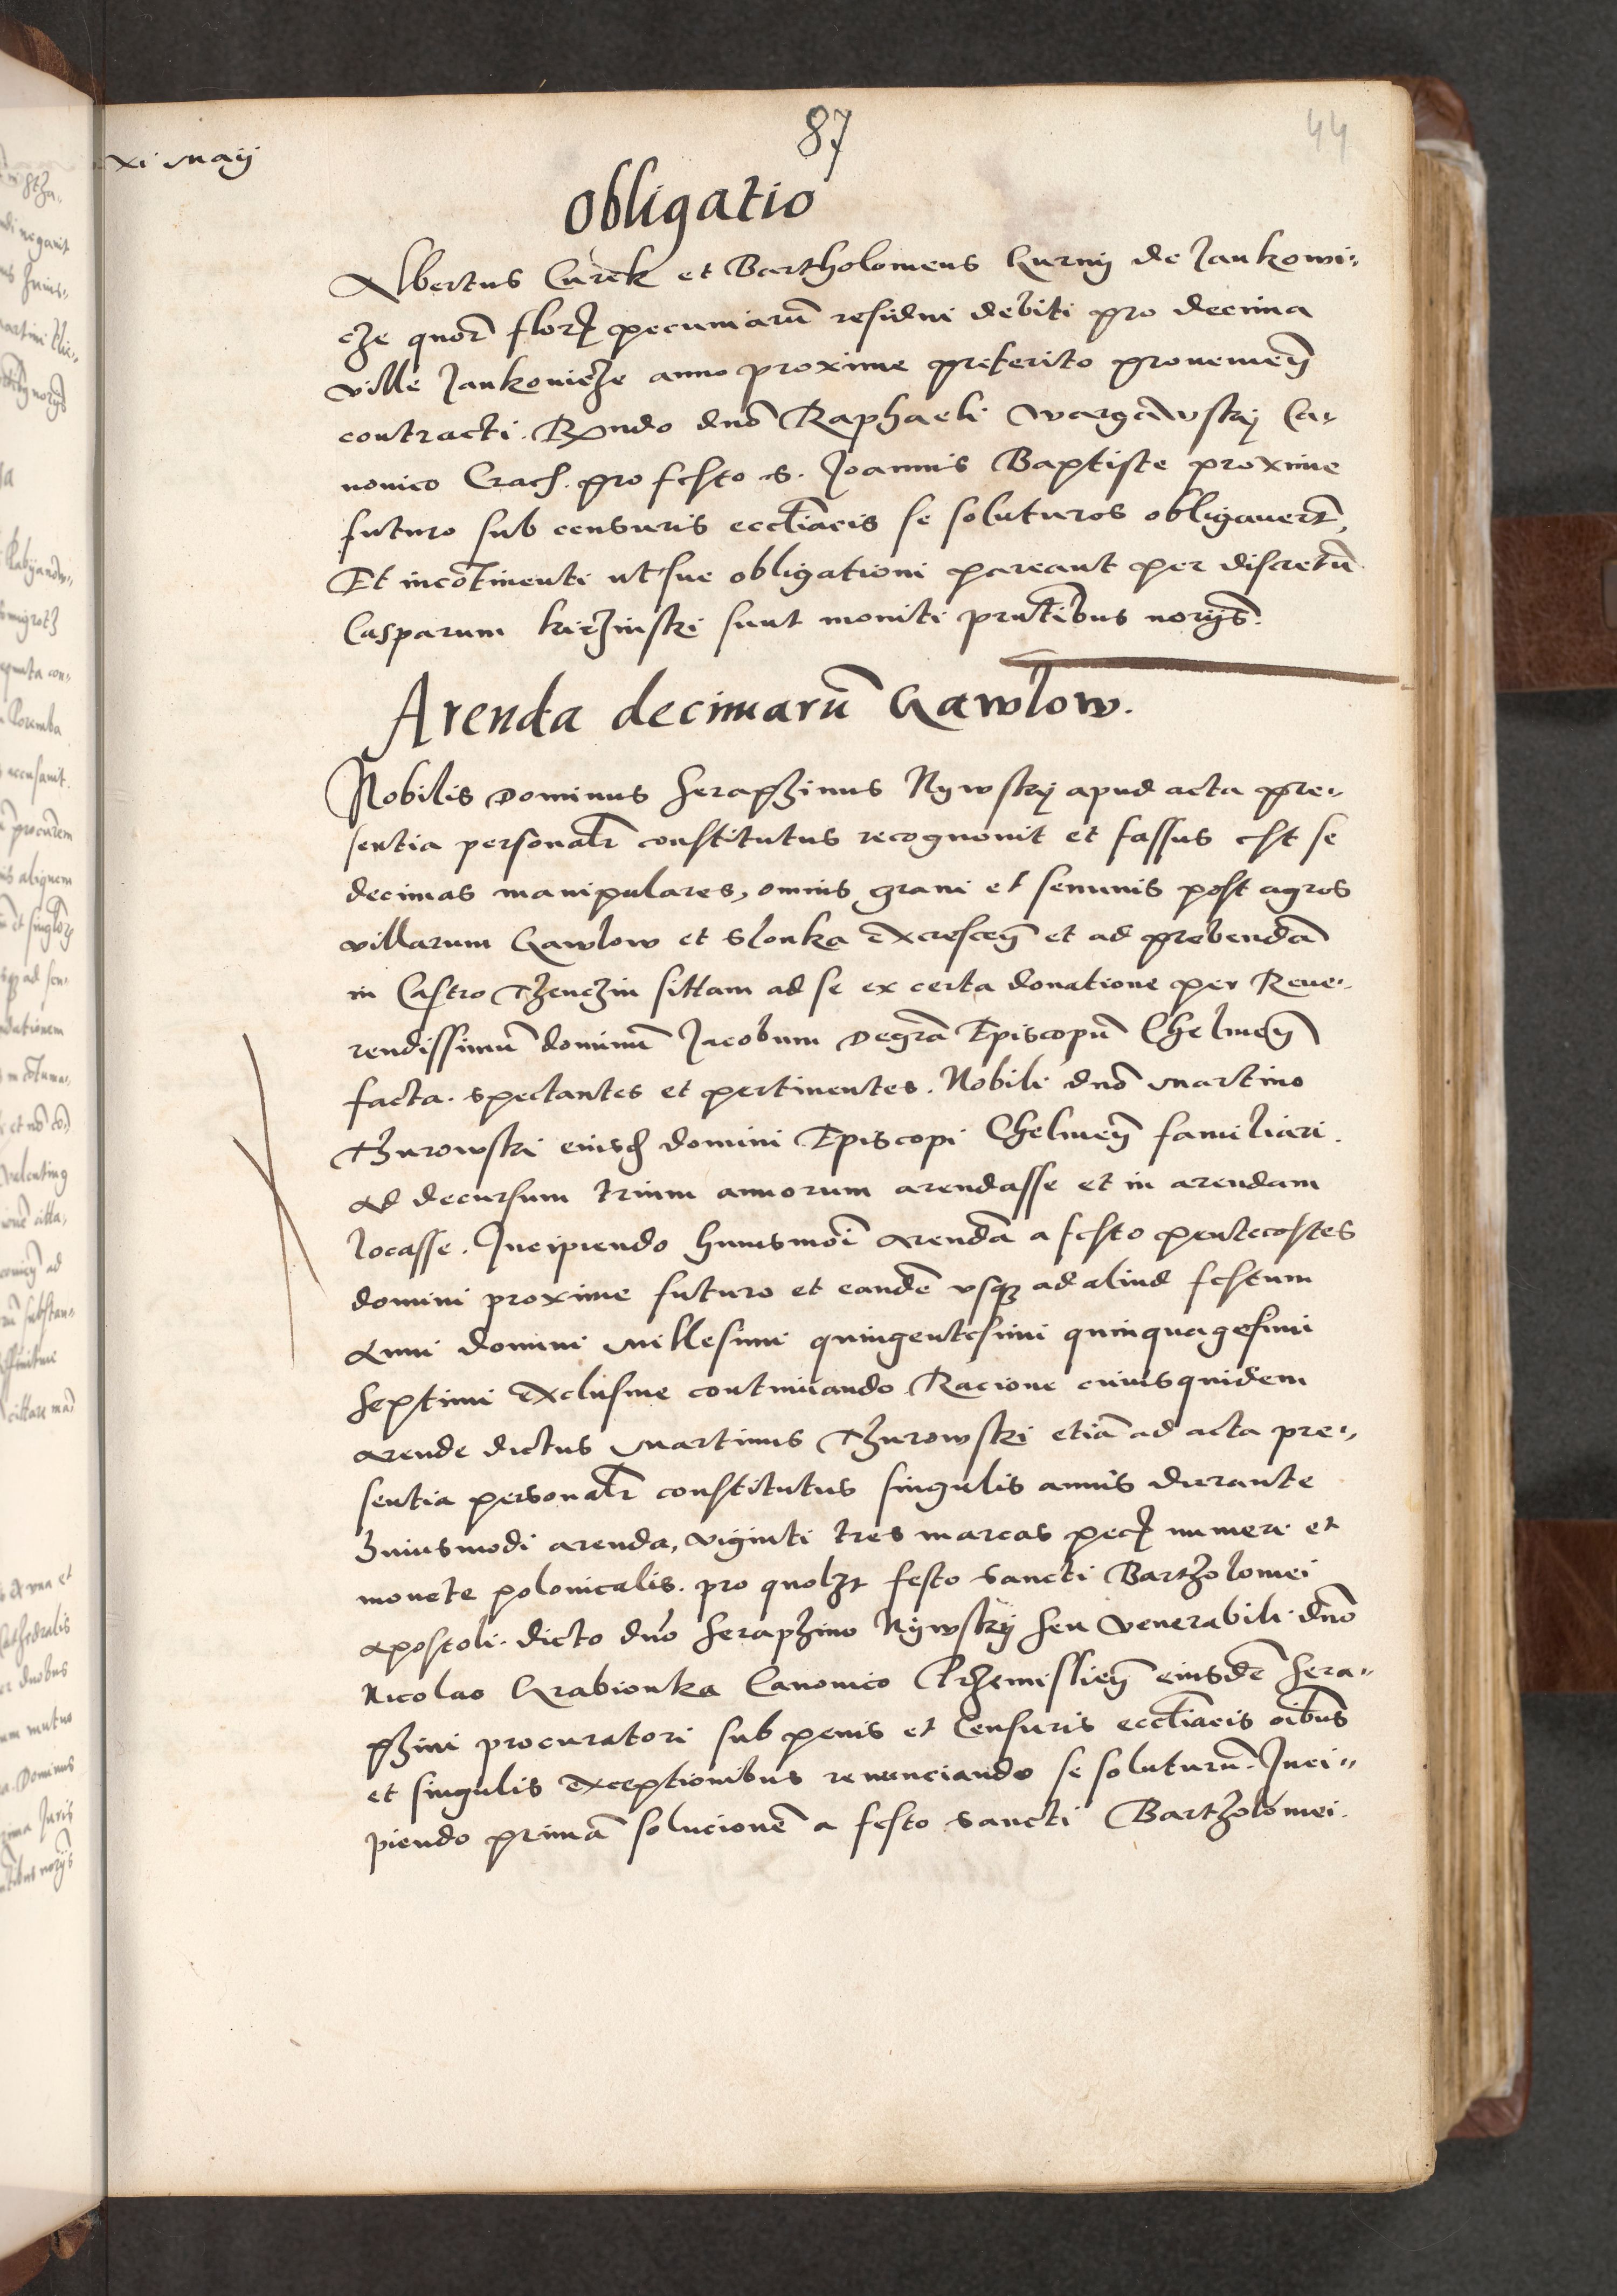 87
44
xi maij
Obligatio
Albertus Curek et Bartholomeus Gurny de Jankowi-
cze quor̃ flor̃ pecuniarũ residui debiti pro decima
ville Jankovicze anno proxime preterito provenieñ
contracti. Rṽndo dnõ Raphaeli Wargawsky Ca-
nonico Crach. pro festo s. Joannis Baptiste proxime
futuro sub censuris eccl̃iacis se soluturos obligavert̃,
Et incõtinenti ut sue obligationi pareant per discretũ
Casparum kiczinski sunt moniti pñtibus norijs̃.
Arenda decimarũ Gawlow.
Nobilis Dominus Seraphinus Nywsky apud acta pre-
sentia personalr̃ constitutus recognovit et fassus est se
decimas manipulares, omnis grani et seminis post agros
villarum Gawlow et Slonka excresceñ et ad prebendã
in Castro Thenczin sittam ad se ex certa donatione per Reve-
rendissimũ dominũ Jacobum Degrã Episcopũ Chelmeñ
facta. spectantes et pertinentes. Nobili dnõ Martino
Thurowski eiusd̃ domini Episcopi Chelmeñ familiari.
ad decursum trium annorum arendasse et in arendam
locasse. Incipiendo huiusmõi arendã a festo pentecostes
domini proxime futuro et eandẽ usq3 ad aliud festum
Anni domini millesimi quingentesimi quinquagesimi
septimi exclusive continuando Racione cuiusquidem
arende dictus Martinus Thurowski etiã ad acta pre-
sentia personalr̃ constitutus singulis annis durante
huiusmodi arenda, viginti tres marcas pec̃ numeri et
monete polonicalis. pro quol3t festo sancti Bartholomei
apostoli. dicto dnõ Seraphino Nywsky seu venerabili dnõ
Nicolao Grabionka Canonico Przemislieñ eiusdẽ Sera-
phini procuratori sub penis et Censuris eccl̃iacis oĩbus
et singulis exceptionibus renunciando se soluturũ. Inci-
piendo primã solucionẽ a festo sancti Bartholomei.